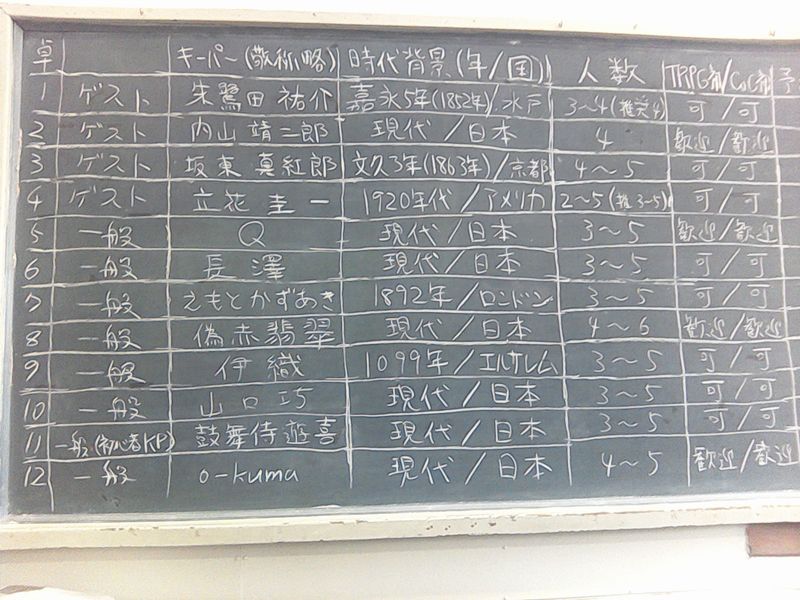 卓 キーパー(敬称略) 時代背景(年/国) 人数 TRPG初/CoC初 予
1 ゲスト 朱鷺田祐介 嘉永5年(1852年)/水戸 3〜4(推奨4) 可/可
2 ゲスト 内山靖二郎 現代/日本 4 歓迎/歓迎
3 ゲスト 坂東真紅郎 文久3年(1863年)/京都 4〜5 可/可
4 ゲスト 立花圭一 1920年代/アメリカ 2〜5(推3〜5) 可/可
5 一般 Q 現代/日本 3〜5 歓迎/歓迎
6 一般 長澤 現代/日本 3〜5 可/可
7 一般 えもとかずあき 1892年/ロンドン 3〜5 可/可
8 一般 偽赤翡翠 現代/日本 4〜6 歓迎/歓迎
9 一般 伊織 1099年/エルサレム 3〜5 可/可
10 一般 山口巧 現代/日本 3〜5 可/可
11 一般(初心者KP) 鼓舞侍遊喜 現代/日本 3〜5 可/可
12 一般 o-kuma 現代/日本 4〜5 歓迎/歓迎